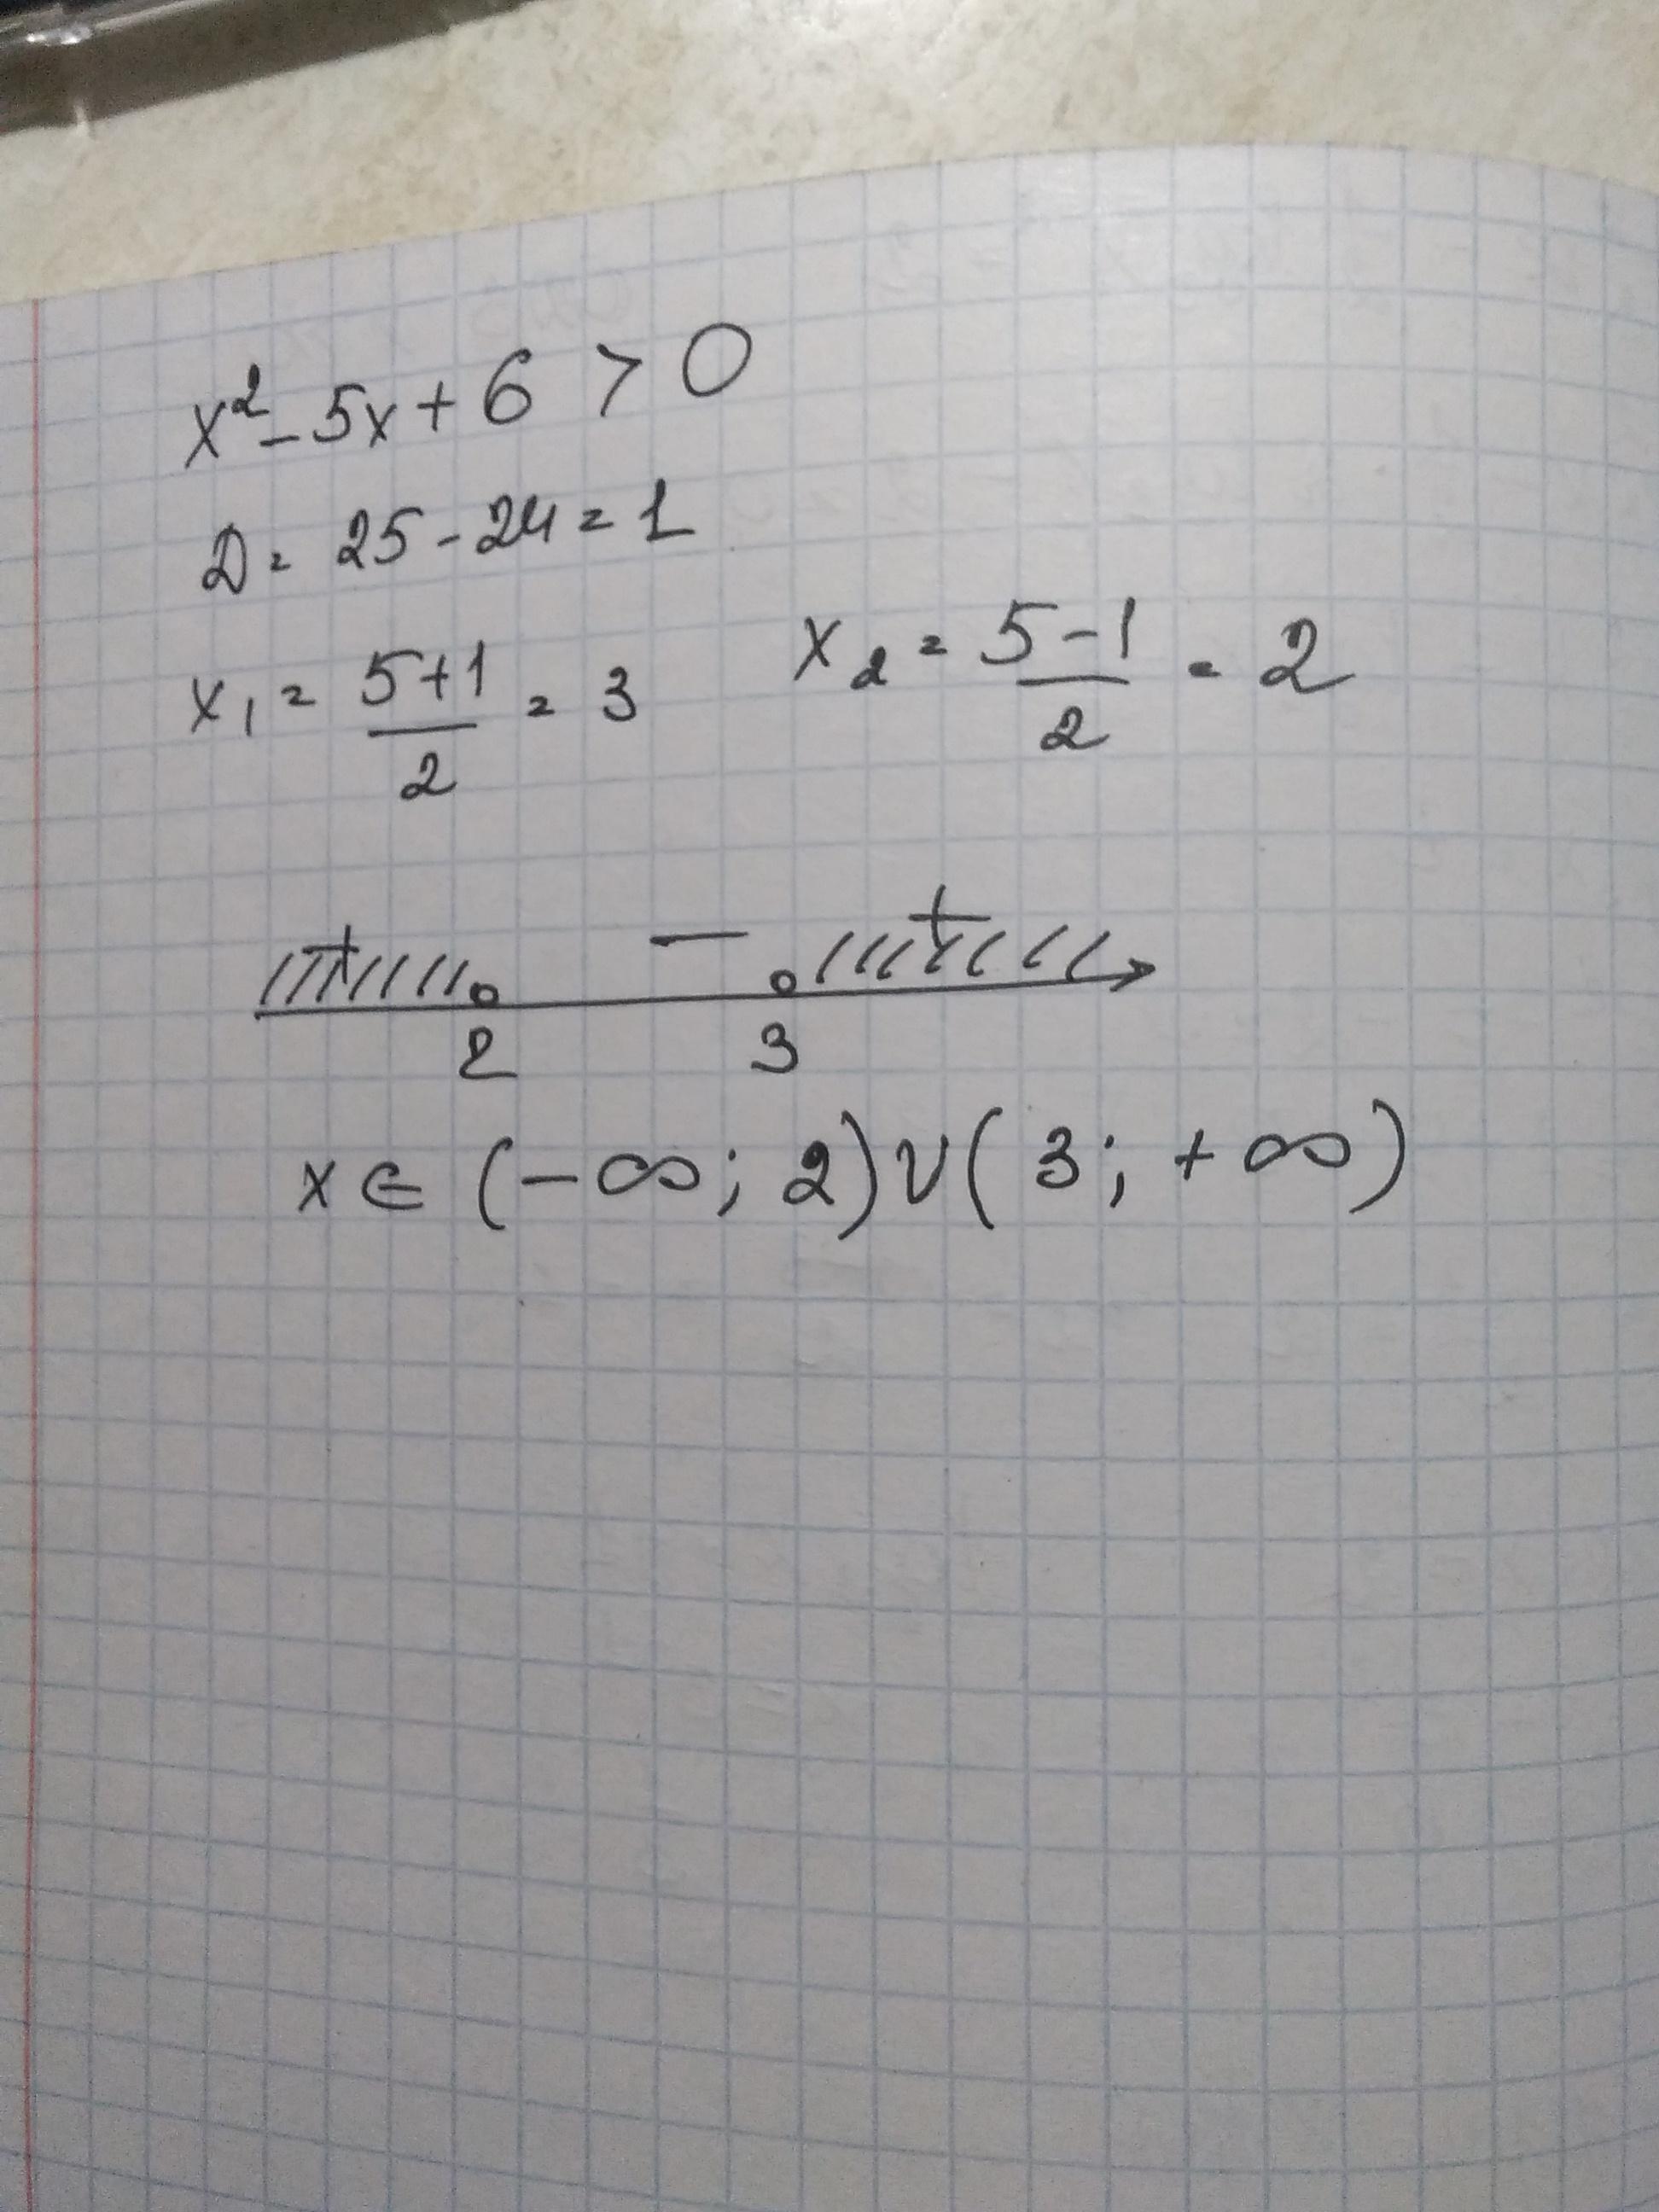 x² - 5x + 6 > 0
D = 25 - 24 = 1
x₁ = (5+1)/2 = 3    x₂ = (5-1)/2 = 2
+ - +
2 3
x ∈ (-∞; 2) ∪ (3; +∞)